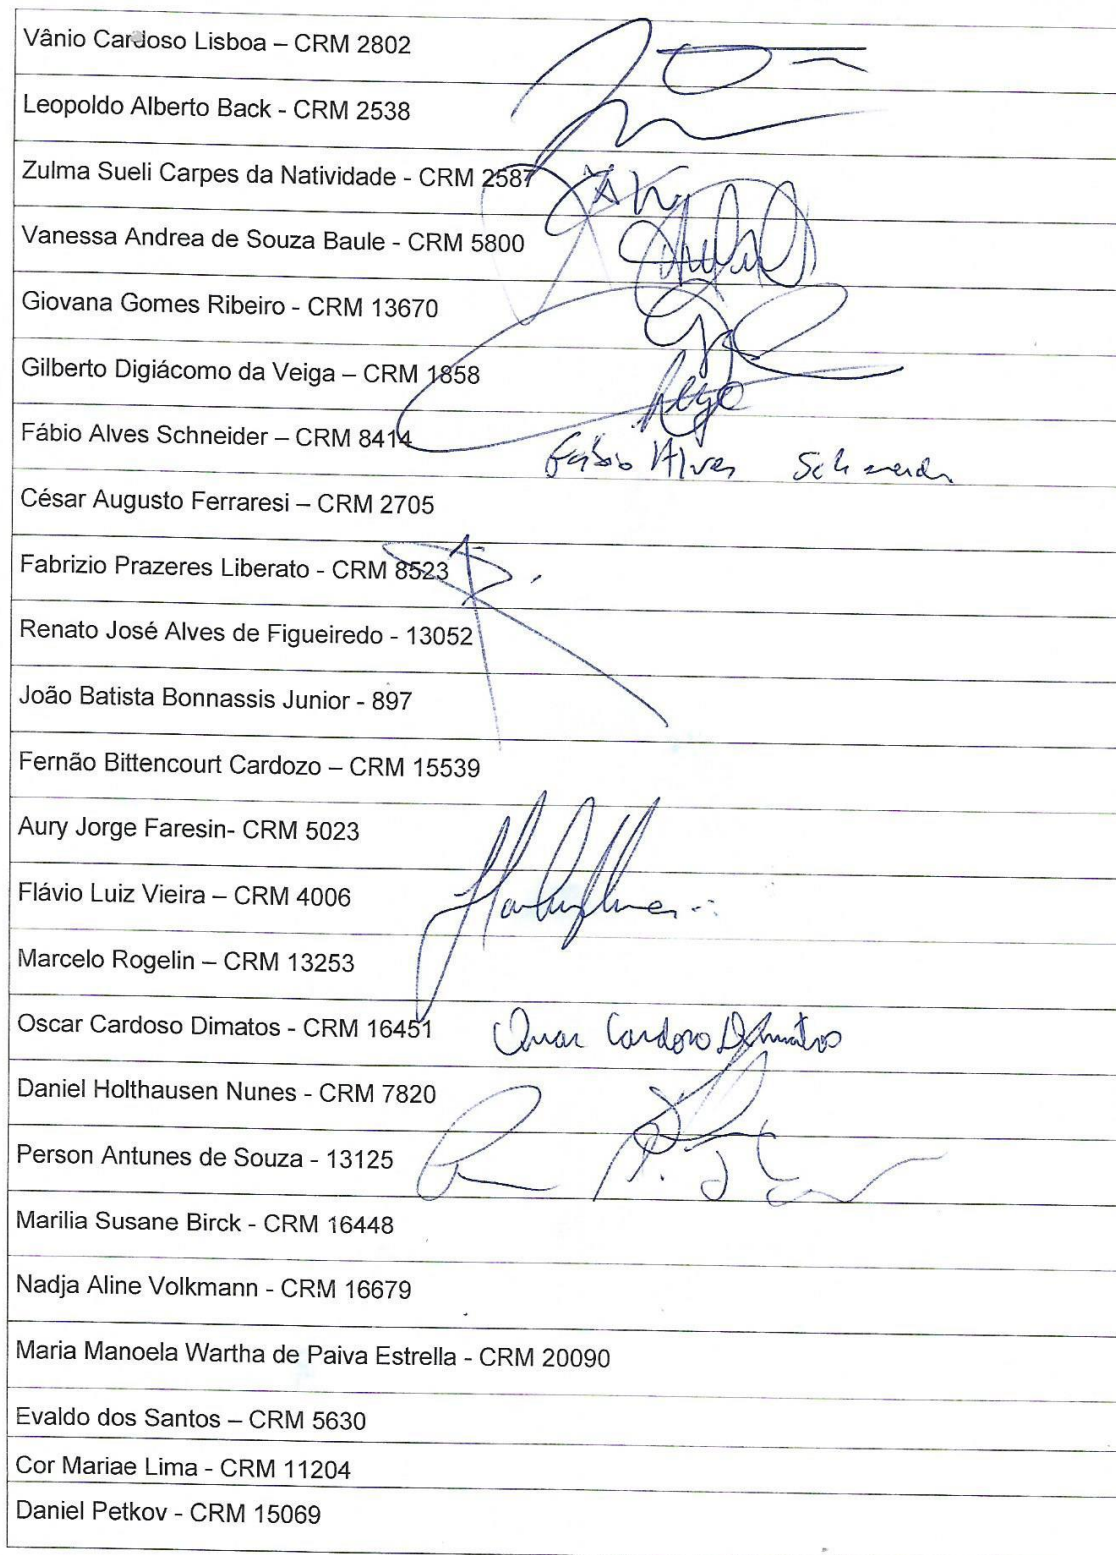 Vânio Cardoso Lisboa – CRM 2802
Leopoldo Alberto Back - CRM 2538
Zulma Sueli Carpes da Natividade - CRM 2587
Vanessa Andrea de Souza Baule - CRM 5800
Giovana Gomes Ribeiro - CRM 13670
Gilberto Digiácomo da Veiga – CRM 1858
Fábio Alves Schneider – CRM 8414
Fábio Alves Schneider
César Augusto Ferraresi – CRM 2705
Fabrizio Prazeres Liberato - CRM 8523
Renato José Alves de Figueiredo - 13052
João Batista Bonnassis Junior - 897
Fernão Bittencourt Cardozo – CRM 15539
Aury Jorge Faresin- CRM 5023
Flávio Luiz Vieira – CRM 4006
Marcelo Rogelin – CRM 13253
Oscar Cardoso Dimatos - CRM 16451 Oscar Cardoso Dimatos
Daniel Holthausen Nunes - CRM 7820
Person Antunes de Souza - 13125
Marilia Susane Birck - CRM 16448
Nadja Aline Volkmann - CRM 16679
Maria Manoela Wartha de Paiva Estrella - CRM 20090
Evaldo dos Santos – CRM 5630
Cor Mariae Lima - CRM 11204
Daniel Petkov - CRM 15069